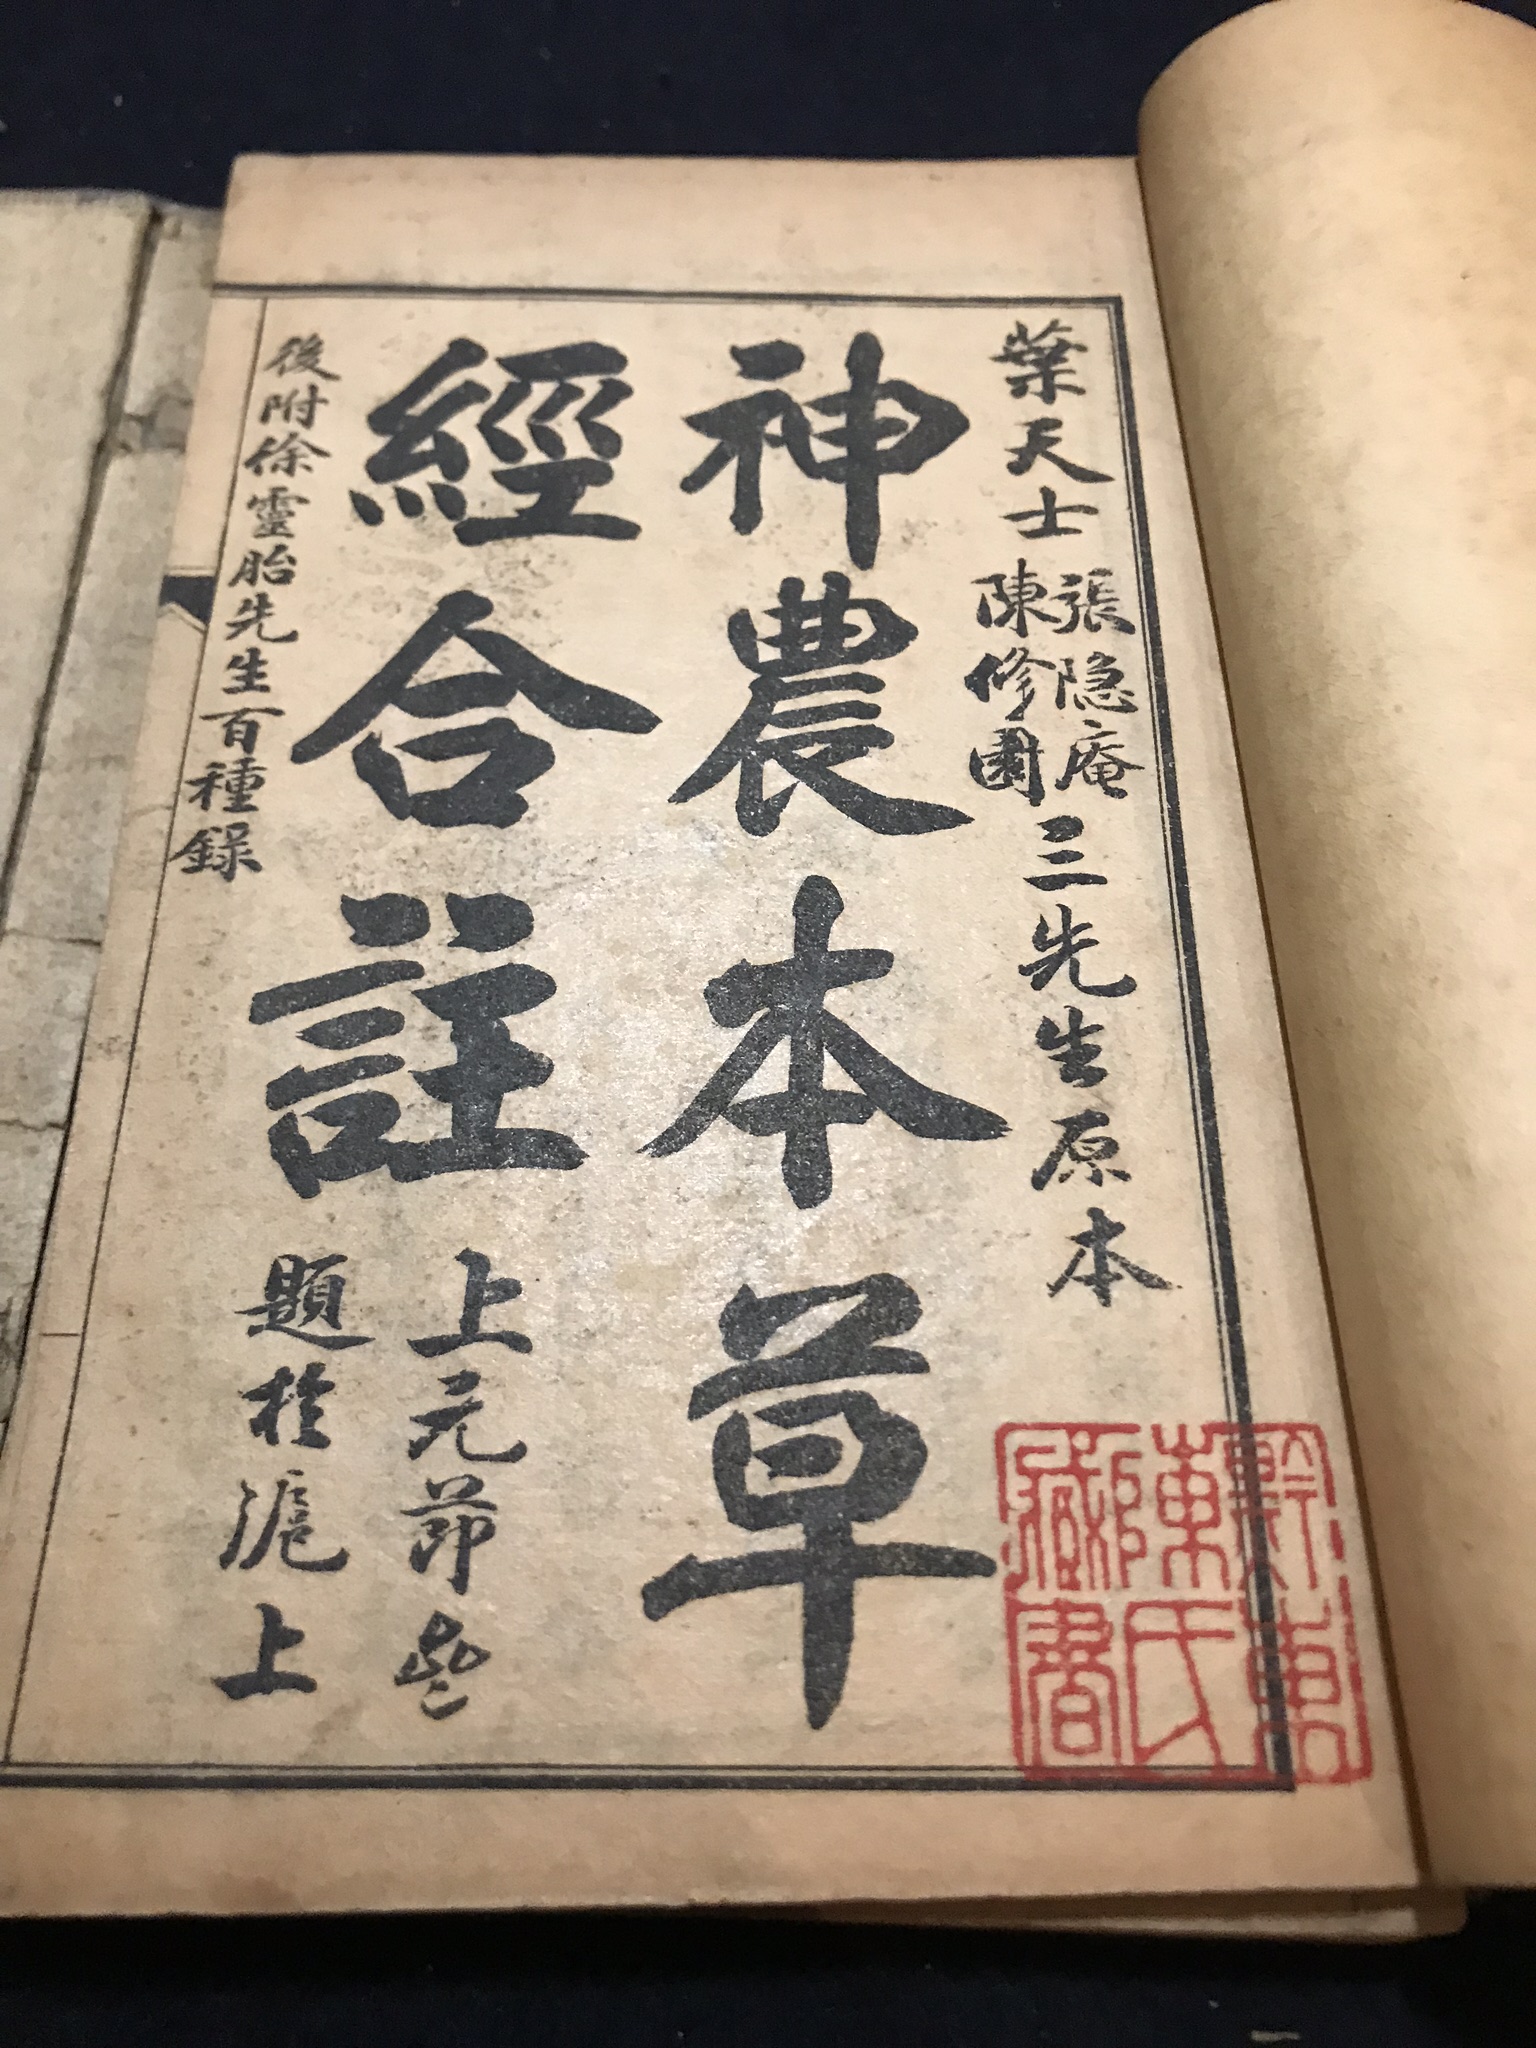 葉天士張隐庵陳修園三先生原本
神農本草
經合註
上元節
題於滬上
後附徐靈胎先生百種錄
黔東
陳氏
藏書